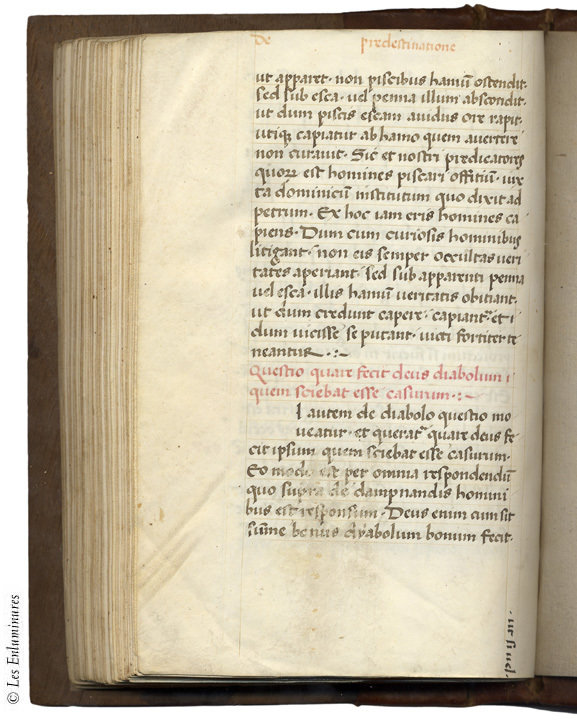 De predestinatione
ut apparet · non piscibus hamū ostendit ·
sed sub esca · vel penna illum abscondit ·
ut dum piscis escam auidus ore rapit ·
utiqꝫ capiatur ab hamo quem auertere
non curauit · Sic et nostri predicatores
quoꝝ est homines piscari offitiū · iux
ta dominicū institutum quo dixit ad
petrum · Ex hoc iam eris homines ca
piens · Dum cum curiosis hominibus
litigant · non eis semper occultas veri
tates aperiant · sed sub apparenti penna
vel esca · illis hamū veritatis obitiant ·
ut dum credunt capere · capiantᷣ et ·
dum vicisse se putant · victi fortiter te
neantur · : ~
Questio quare fecit deus diabolum
quem sciebat esse casurum · : ~
I autem de diabolo questio mo
ueatur · et queratᷣ quare deus fe
cit ipsum quem sciebat esse casurum ·
Eo modo est per omnia respondendū
quo supra de dampnandis homini
bus est responsum · Deus enim cum sit
sūme bonus dyabolum bonum fecit ·
© Les Enluminures